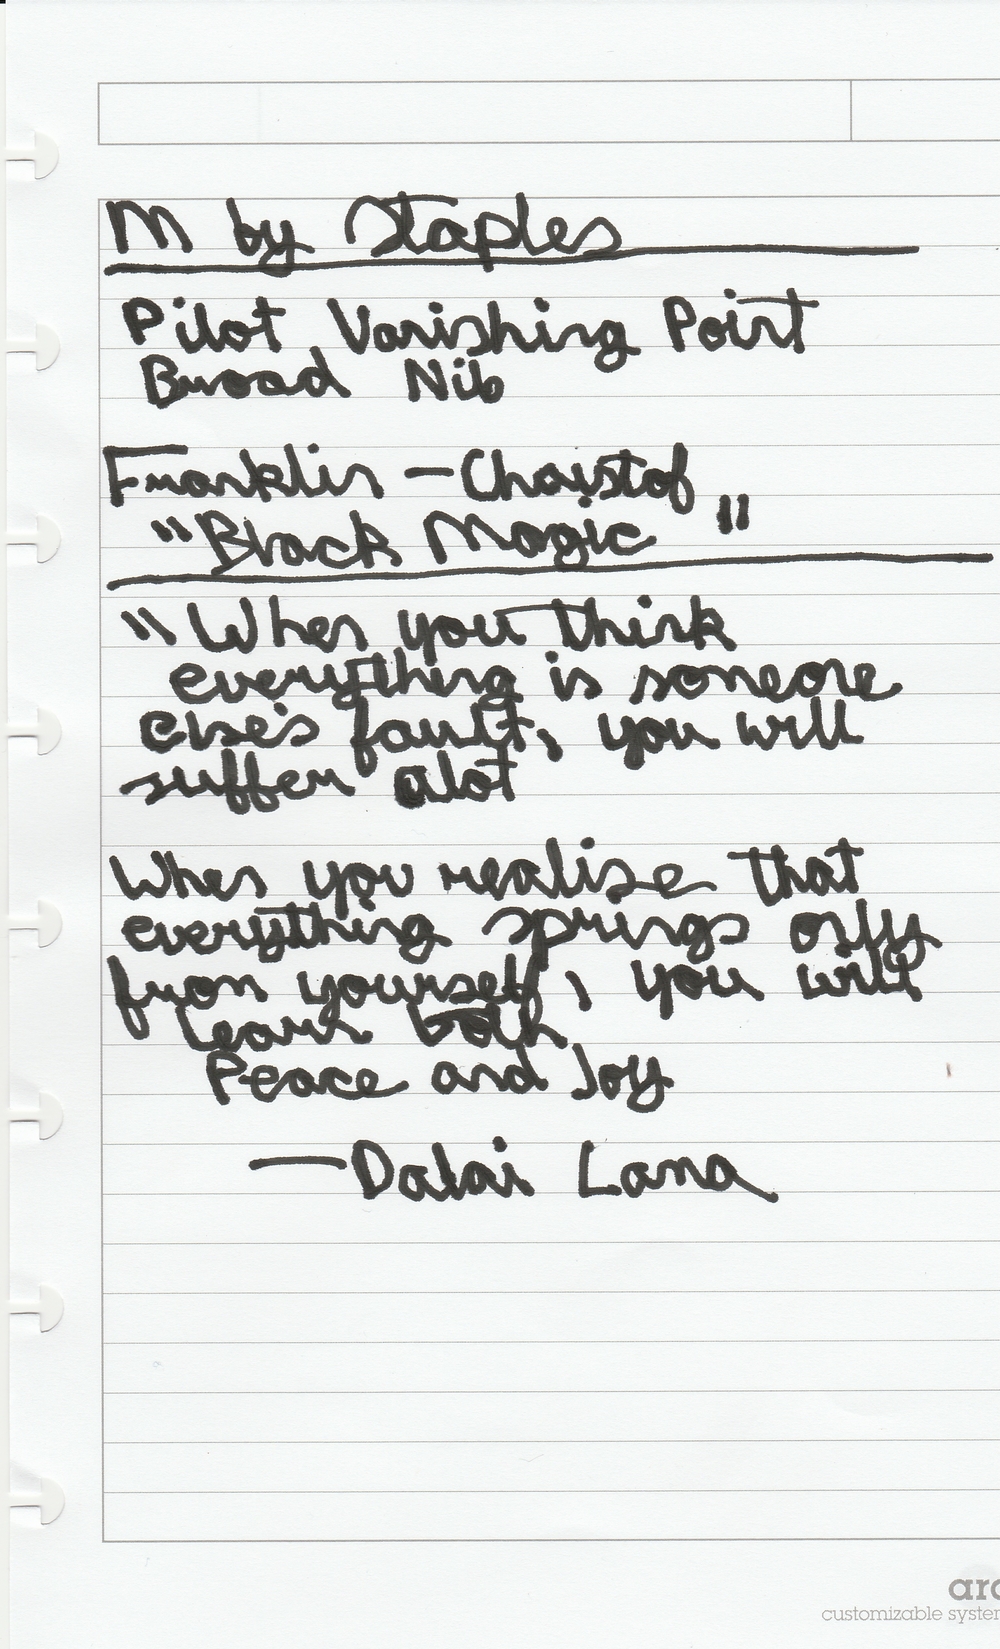 M by Staples
Pilot Vanishing Point
Broad Nib
Franklin - Christof
"Black Magic"
"When you think
everything is someone
else's fault, you will
suffer alot
When you realise that
everything springs only
from yourself, you will
learn both
Peace and Joy
—Dalai Lama
arc
customizable system